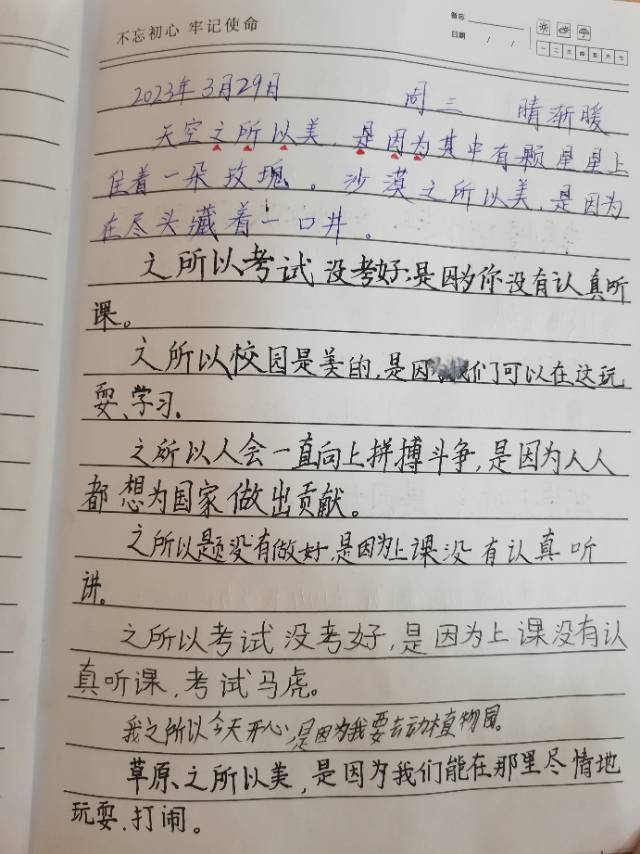 不忘初心 牢记使命
备忘
日期 / /
一 二 三 四 五 六 日
2023年3月29日 周三 晴渐暖
天空之所以美,是因为其中有颗星星上
住着一朵玫瑰。沙漠之所以美,是因为
在尽头藏着一口井。
之所以考试没考好,是因为你没有认真听
课。
之所以校园是美的,是因们可以在这玩
耍、学习.
之所以人会一直向上拼搏斗争,是因为人人
都想为国家做出贡献。
之所以题没有做好,是因为上课没有认真听
讲。
之所以考试没考好,是因为上课没有认
真听课,考试马虎。
我之所以今天开心,是因为我要去动植物园。
草原之所以美,是因为我们能在那里尽情地
玩耍、打闹。